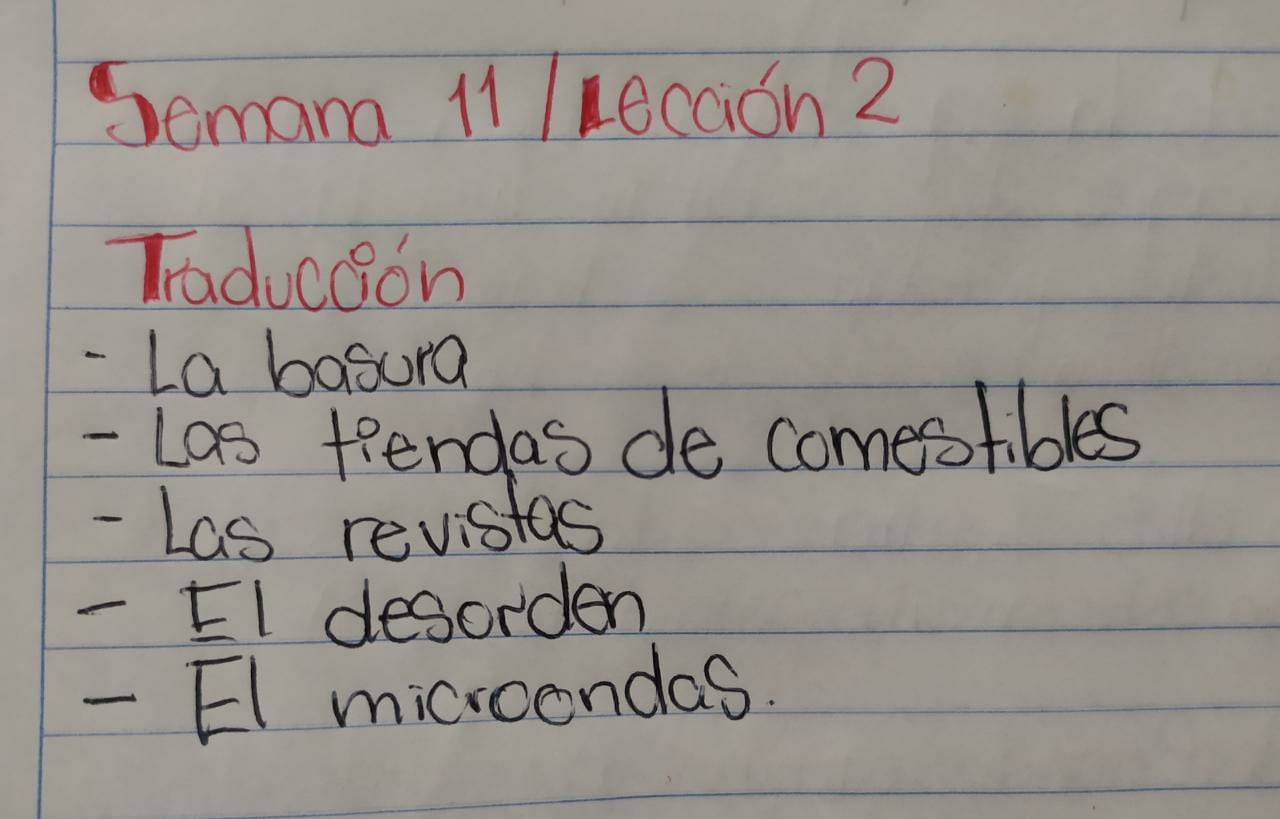 Semana 11 / Lección 2
Traducción
- La basura
- Las tiendas de comestibles
- Las revistas
- El desorden
- El microondas.